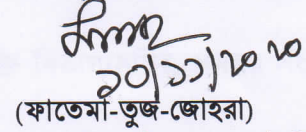 ১০/১১/২০২০
(ফাতেমা-তুজ-জোহরা)